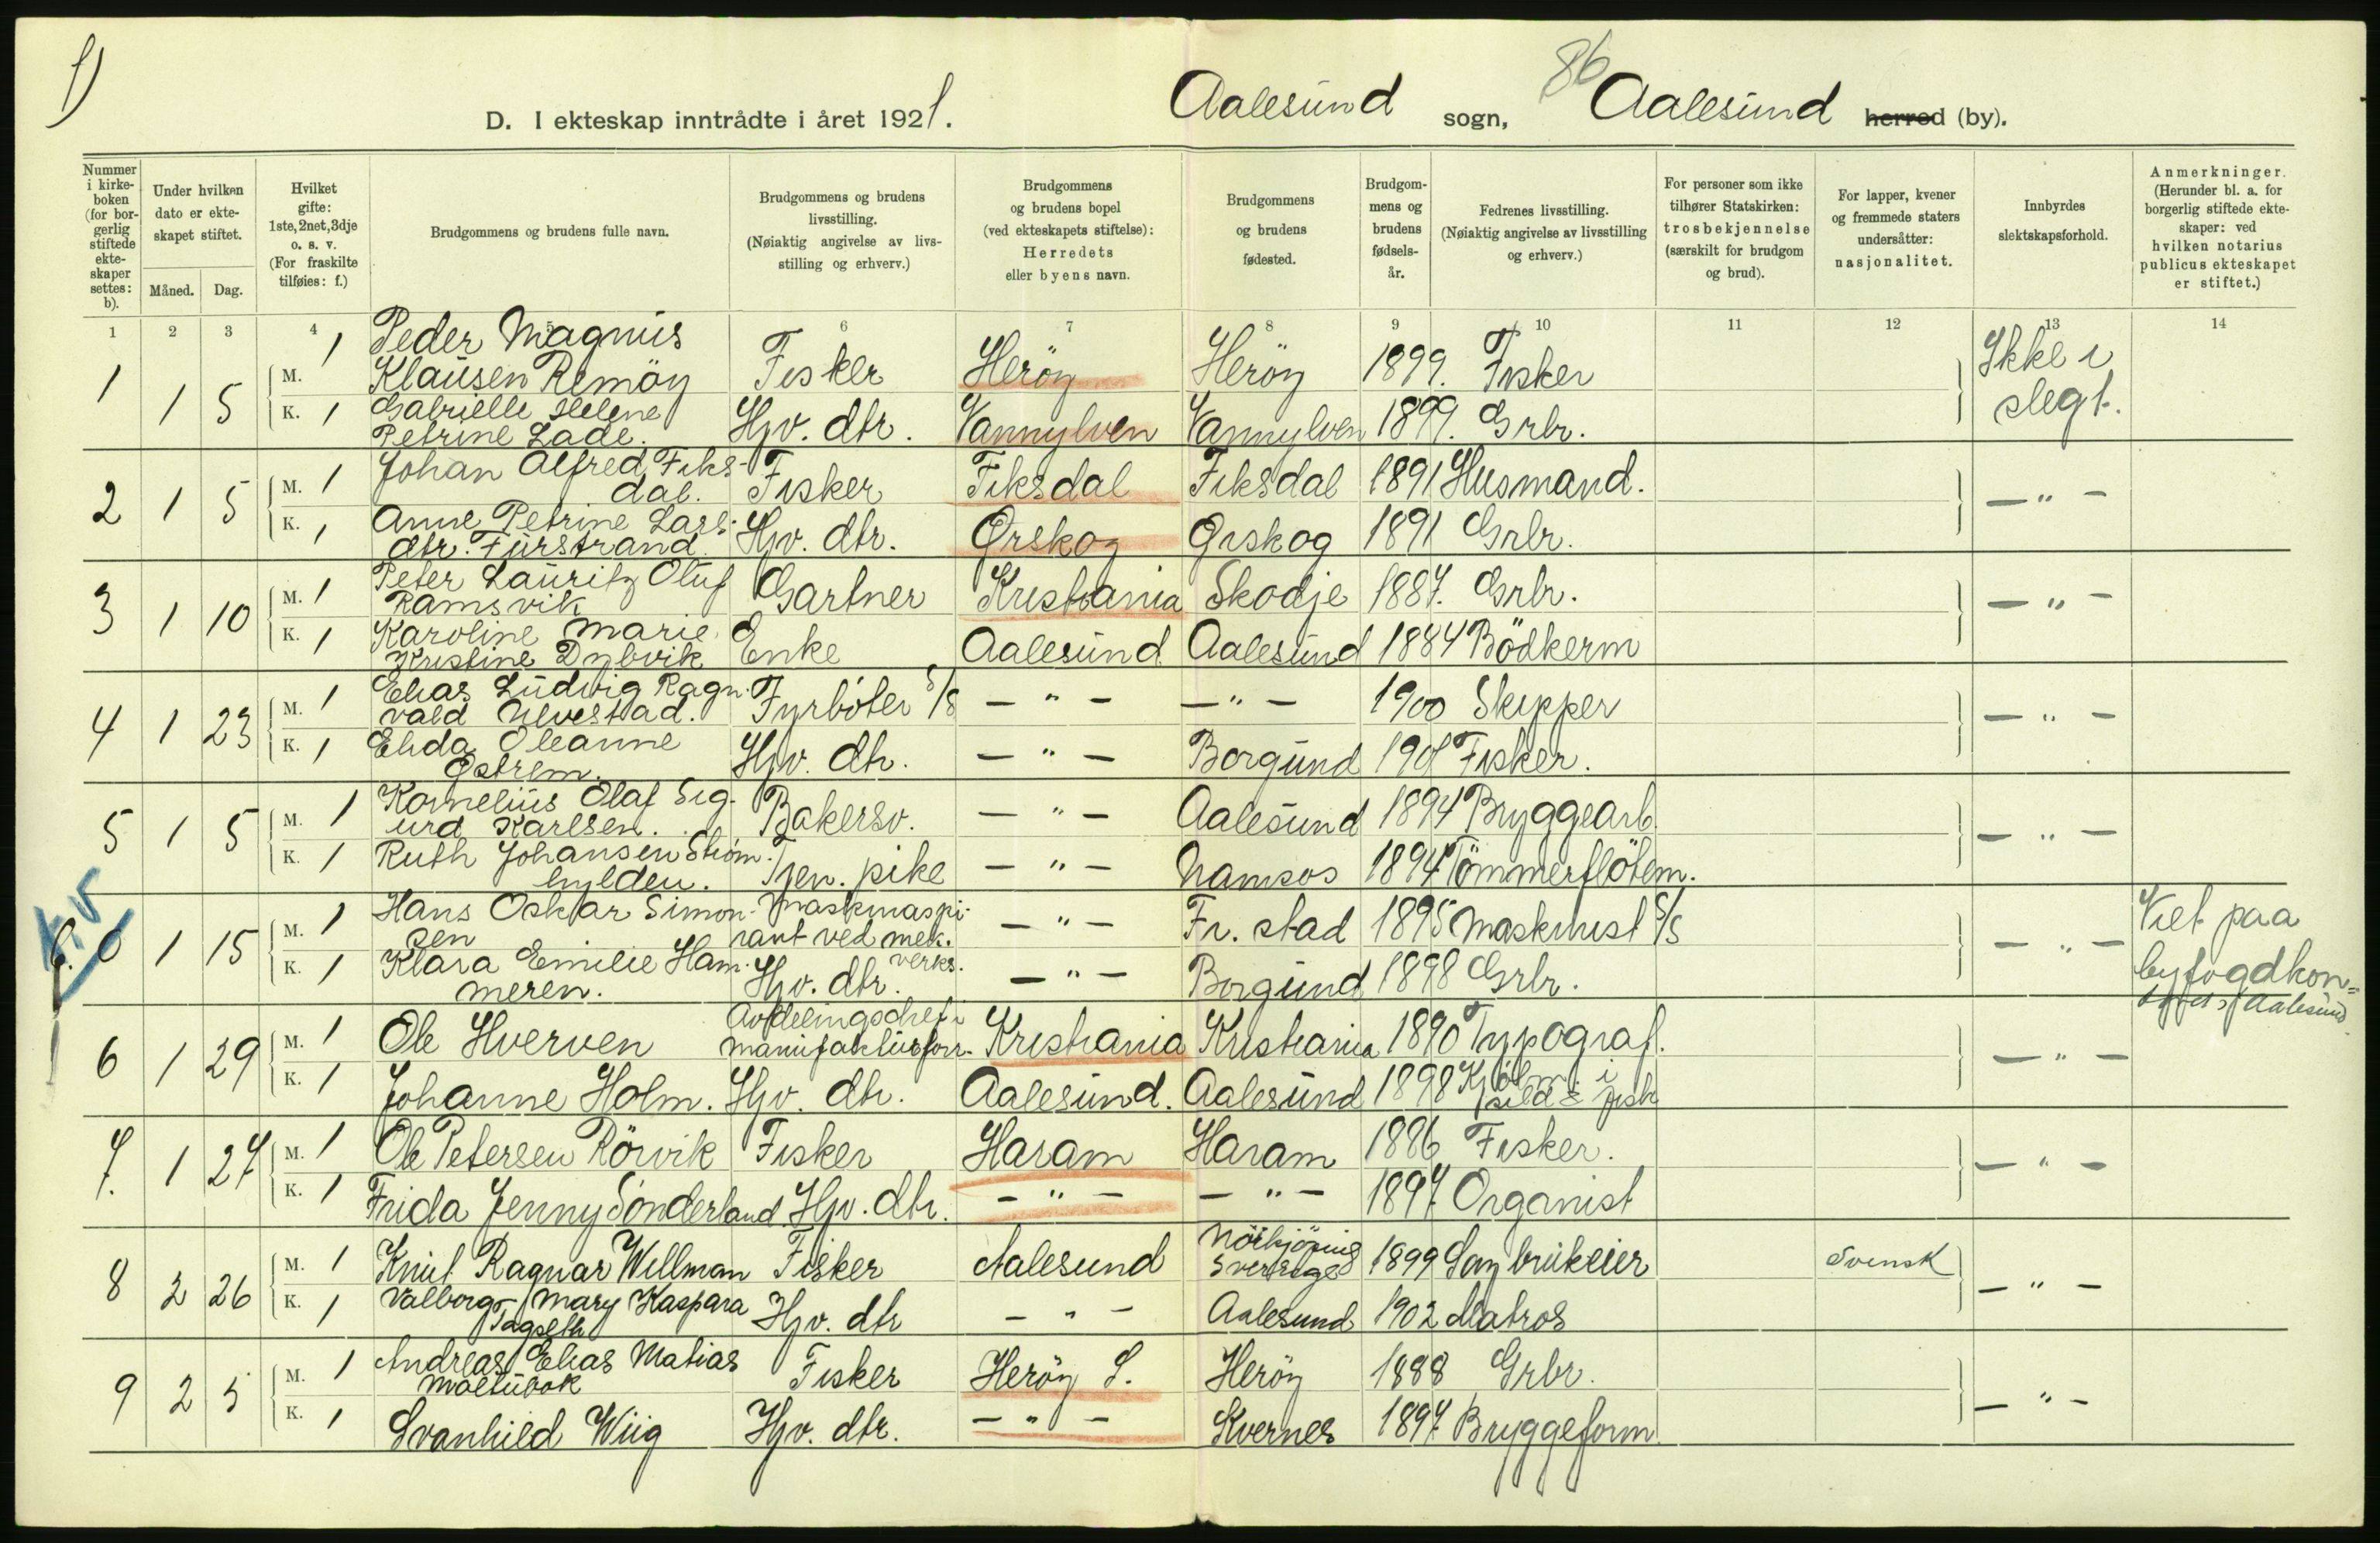 1)
86
D. I ekteskap inntrådte i året 1921. Aalesund sogn, Aalesund herred (by).
Nummer i kirke-boken (for bor-gerlig stiftede ekte-skaper settes: b).
Under hvilken dato er ekte-skapet stiftet.
Måned. Dag.
Hvilket gifte: 1ste, 2net, 3dje o. s. v. (For fraskilte tilføies: f.)
Brudgommens og brudens fulle navn.
Brudgommens og brudens livsstilling. (Nøiaktig angivelse av livs-stilling og erhverv.)
Brudgommens og brudens bopel (ved ekteskapets stiftelse): Herredets eller byens navn.
Brudgommens og brudens fødested.
Brudgom-mens og brudens fødsels-år.
Fedrenes livsstilling. (Nøiaktig angivelse av livsstilling og erhverv.)
For personer som ikke tilhører Statskirken: trosbekjennelse (særskilt for brudgom og brud).
For lapper, kvener og fremmede staters undersåtter: nasjonalitet.
Innbyrdes slektskapsforhold.
Anmerkninger. (Herunder bl. a. for borgerlig stiftede ekte-skaper: ved hvilken notarius publicus ekteskapet er stiftet.)
1 2 3 4 5 6 7 8 9 10 11 12 13 14
1 1 5 M. 1 Peder Magnus Klausen Remöy Fisker Heröy Heröy 1899. Fisker Ikke i slegt.
K. 1 Gabrielle Helene Petrine Lade. Hjv. dtr. Vannylven Vannylven 1899. Grbr.
2 1 5 M. 1 Johan Alfred Fiks-dal. Fisker Fiksdal Fiksdal 1891 Husmand. — " —
K. 1 Anne Petrine Lars-dtr. Furstrand. Hjv. dtr. Ørskog Ørskog 1891 Grbr.
3 1 10 M. 1 Peter Lauritz Oluf Ramsvik Gartner Kristiania Skodje 1887. Grbr. — " —
K. 1 Karoline Marie Kristine Dybvik Enke Aalesund Aalesund 1884 Bödkerm
4 1 23 M. 1 Elias Ludvig Ragn-vald Ulvestad. Fyrböter S/S — " — — " — 1900 Skipper — " —
K. 1 Elida Oleanne Østrem. Hjv. dtr. — " — Borgund 1901 Fisker.
5 1 5 M. 1 Kornelius Olaf Sig-urd Karlsen. Bakersv. — " — Aalesund 1894 Bryggearb. — " —
K. 1 Ruth Johansen Ström-hylden. Tjen. pike — " — Namsos 1894 Tömmerflöterm.
b. 0 1 15 M. 1 Hans Oskar Simon-sen Maskinaspi-rant ved mek. verks. — " — Fr. stad 1895 Maskinist S/S — " — Viet paa byfogdkon= Aalesund.
K. 1 Klara Emilie Ham-meren. Hjv. dtr. — " — Borgund 1898 Grbr.
6 1 29 M. 1 Ole Hverven Avdelingschef i manufakturforr. Kristiania Kristiania 1890 Typograf. — " —
K. 1 Johanne Holm. Hjv. dtr. Aalesund. Aalesund 1898 Kjöbm. i sild & fisk
7. 1 27 M. 1 Ole Petersen Rörvik Fisker Haram Haram 1886 Fisker. — " —
K. 1 Frida Jenny Sönderland. Hjv. dtr. — " — — " — 1897. Organist
8 2 26 M. 1 Knut Ragnar Willman Fisker Aalesund Nörkjöping Sverrige 1899 Sagbrukeier Svensk — " —
K. 1 Valborg Mary Kaspara Tagseth Hjv. dtr — " — Aalesund 1902 Matros
9 2 5 M. 1 Andreas Elias Matias Fisker Heröy S. Heröy 1888 Grbr. — " —
K. 1 Svanhild Wiig Hjv. dtr. — " — Kvernes 1897. Bryggeform.